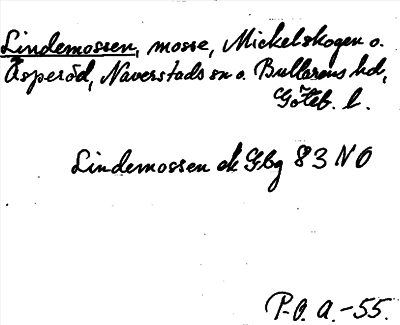 Lindemossen, mosse, Mickelskogen o.
Åsperöd, Naverstads sn o. Bullarens hd,
Göteb. l.
Lindemossen ek Gbg 83 NO
P.O. A. -55.